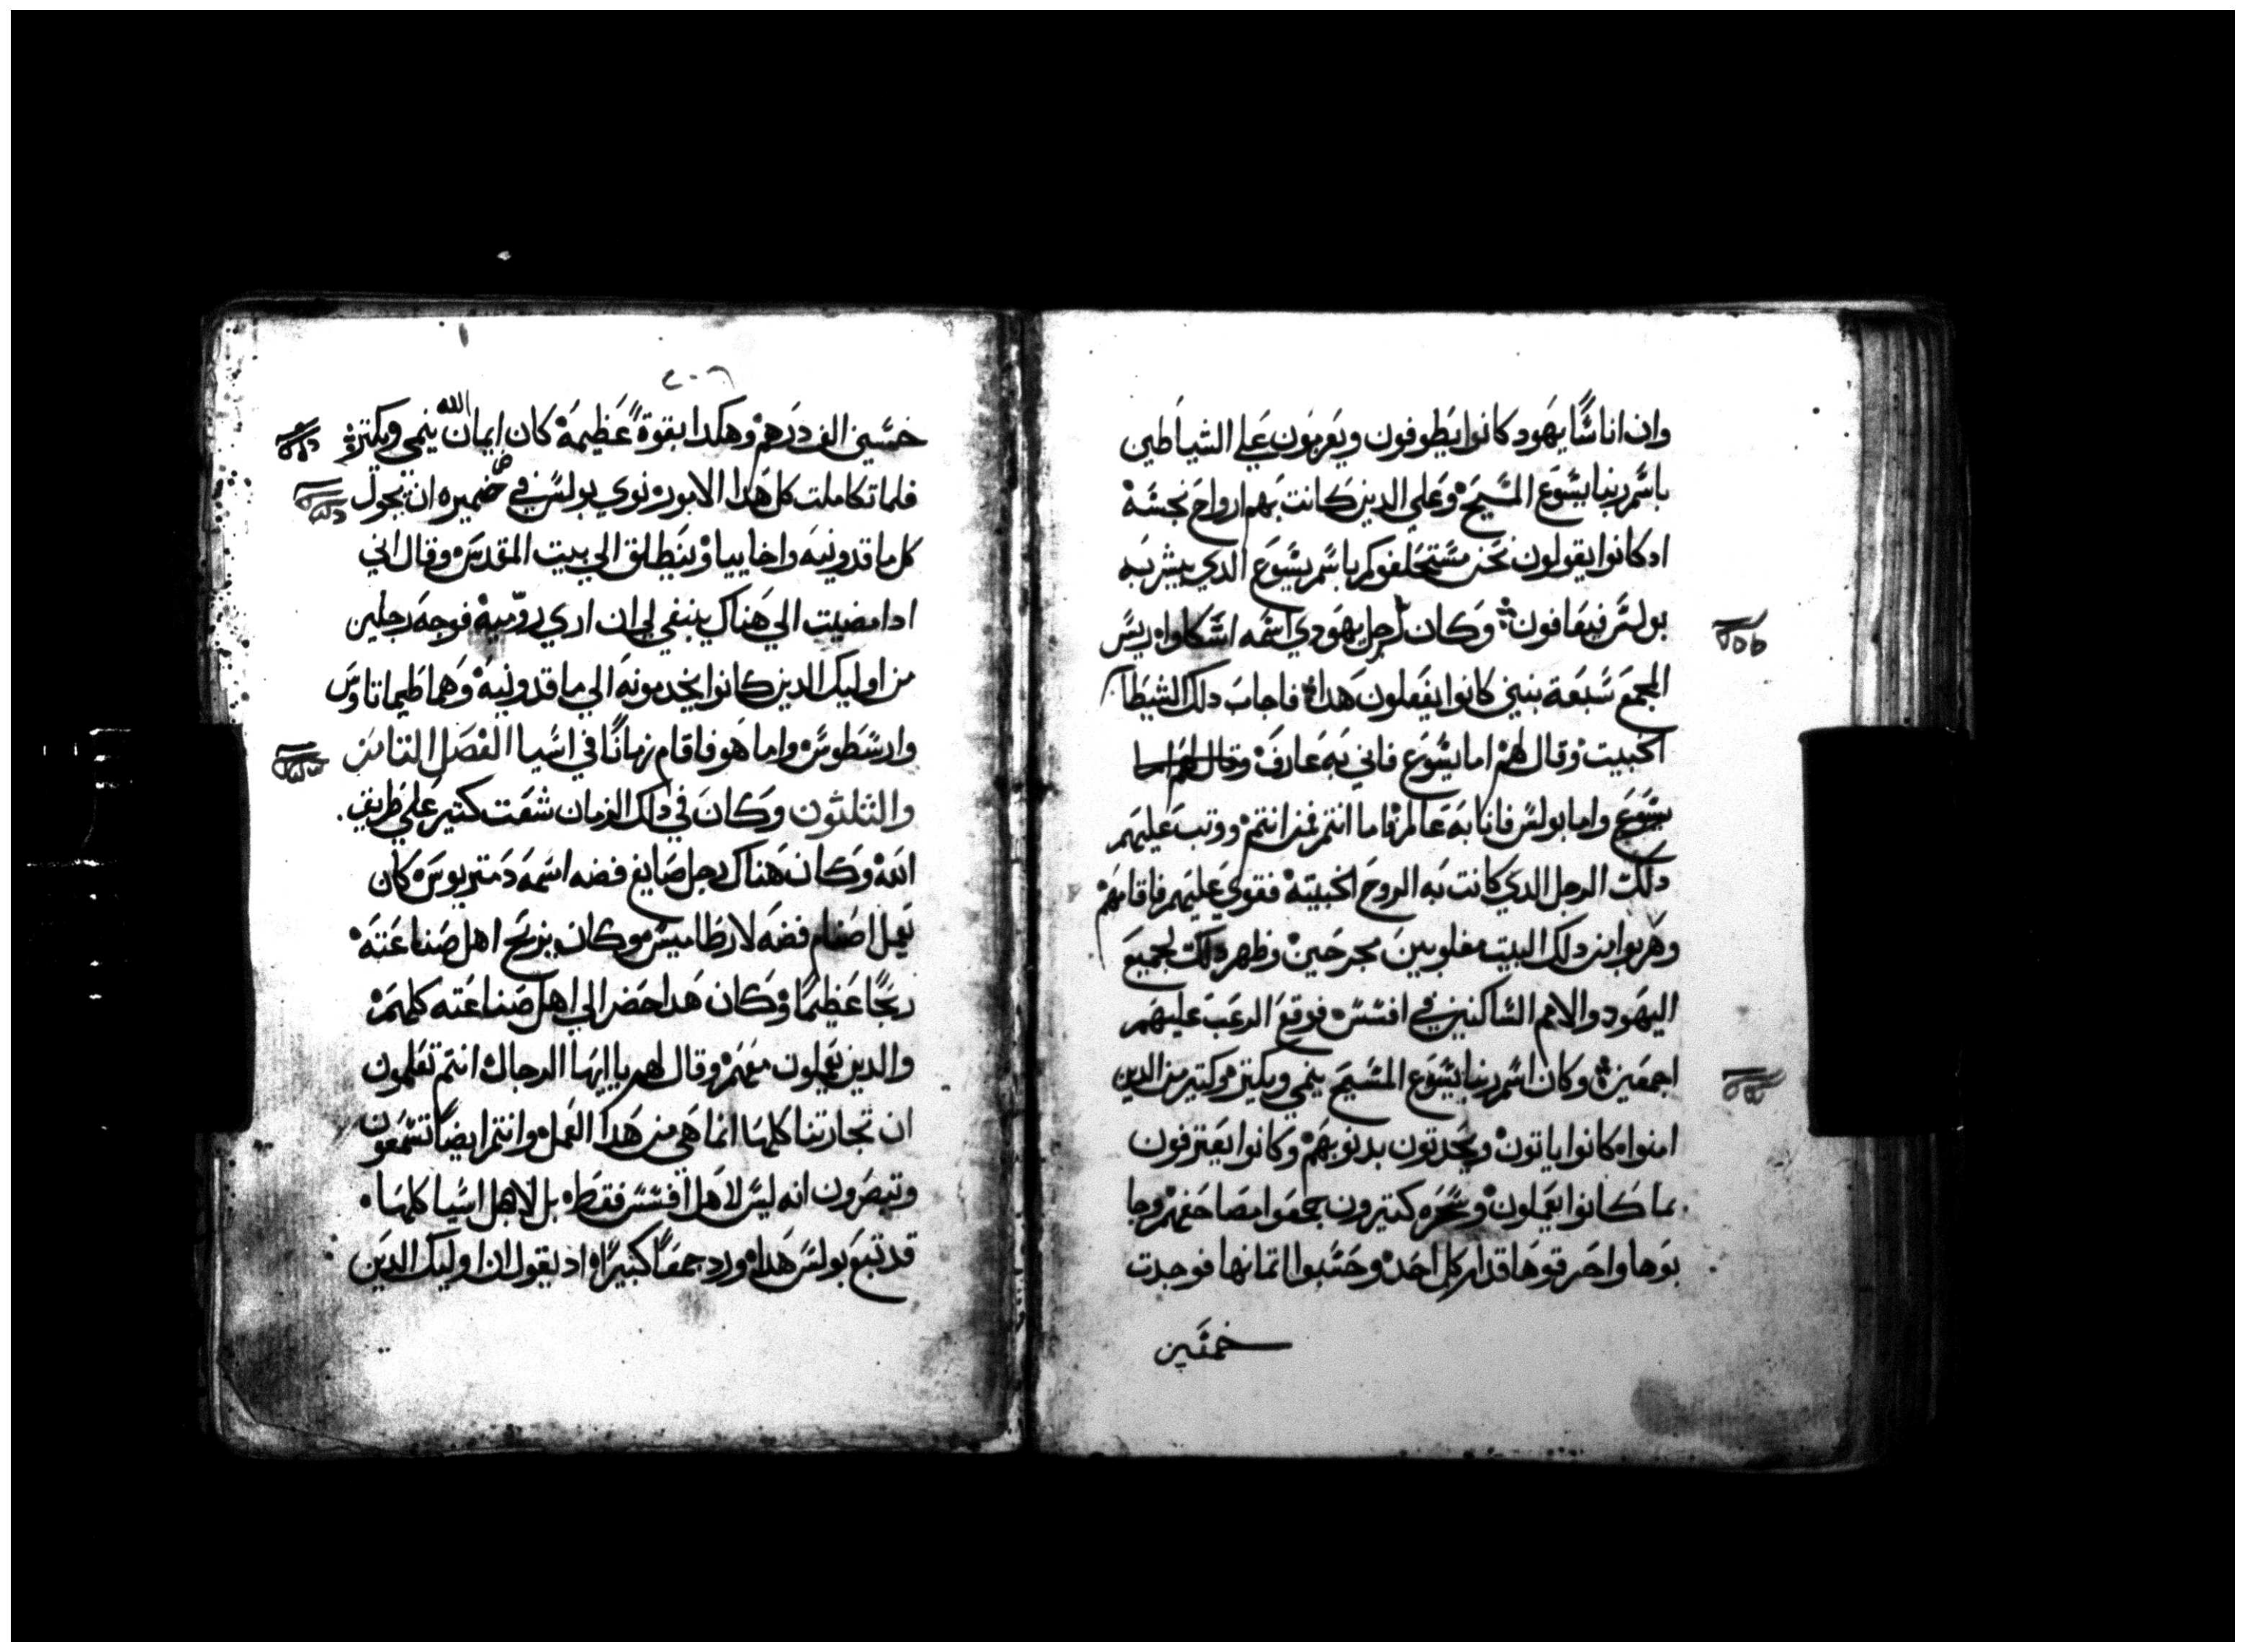 وان اناسًا يهود كانوا يطوفون ويعزمون علي الشياطين
باسم ربنا يسوع المسيح وعلي الدين كانت بهم ارواح نجسه
ادكانوا يقولون نحن نستحلفوكم باسم يسوع الدي يبشر به
بولس فيعافون وكان لرجل يهودي اسمه اسكاوا ريس
المجمع سبعة بنين كانوا يفعلون هدا فاجاب دلك الشيطان
الخبيت وقال لهم اما يسوع فاني به عارف وقال لهم اما
يسوع واما بولس فانا به عالم فاما انتم فمن انتم ووتب عليهم
دلك الرجل الدي كانت به الروح الخبيته فقوي عليهم فاقامهم
وهربوا من دلك البيت مغلوبين مجرحين وظهر دلك لجميع
اليهود والامم الساكنين في افسس فوقع الرعب عليهم
اجمعين وكان اسم ربنا يسوع المسيح ينمي ويكتر وكتير من الدين
امنوا كانوا ياتون ويحدتون بدنوبهم وكانوا يعترفون
بما كانوا يعملون وسحره كتيرون جمعوا مصاحفهم وجا
بوها واحرقوها قدام كل احد وحسبوا اتمانها فوجدت
خمسين
٢٠٦
خمسين الف درهم وهكدا بقوة عظيمة كان ايمان الله ينمي ويكتر
فلما تكاملت كل هدا الامور نوي بولس في ضميره ان يجول
كل ماقدونيه واخاييا وينطلق الي بيت المقدس وقال اني
ادا مضيت الي هناك ينبغي لي ان اري روميه فوجه رجلين
من اوليك الدين كانوا يخدمونه الي ماقدونيه وهما طيماتاوس
وارسطوس واما هو فاقام زمانًا في اسيا الفصل التامن
والثلثون وكان في دلك الزمان شغت كتير علي طريق
الله وكان هناك رجل صايغ فضه اسمه دمتريوس كان
يعمل اصنام فضه لارطاميس وكان يربح اهل صناعته
ربحًا عظيمًا وكان هدا حضر الي اهل صناعته كلهم
والدين يعملون معهم وقال لهم يا ايها الرجال انتم تعلمون
ان تجارتنا كلها انما هي من هدا العمل وانتم ايضًا تسمعون
وتبصرون انه ليس لاهل افسس فقط بل لاهل اسيا كلها
قد تبع بولس هدا ورد جمعًا كبيرًا اد يقول ان اوليك الدين